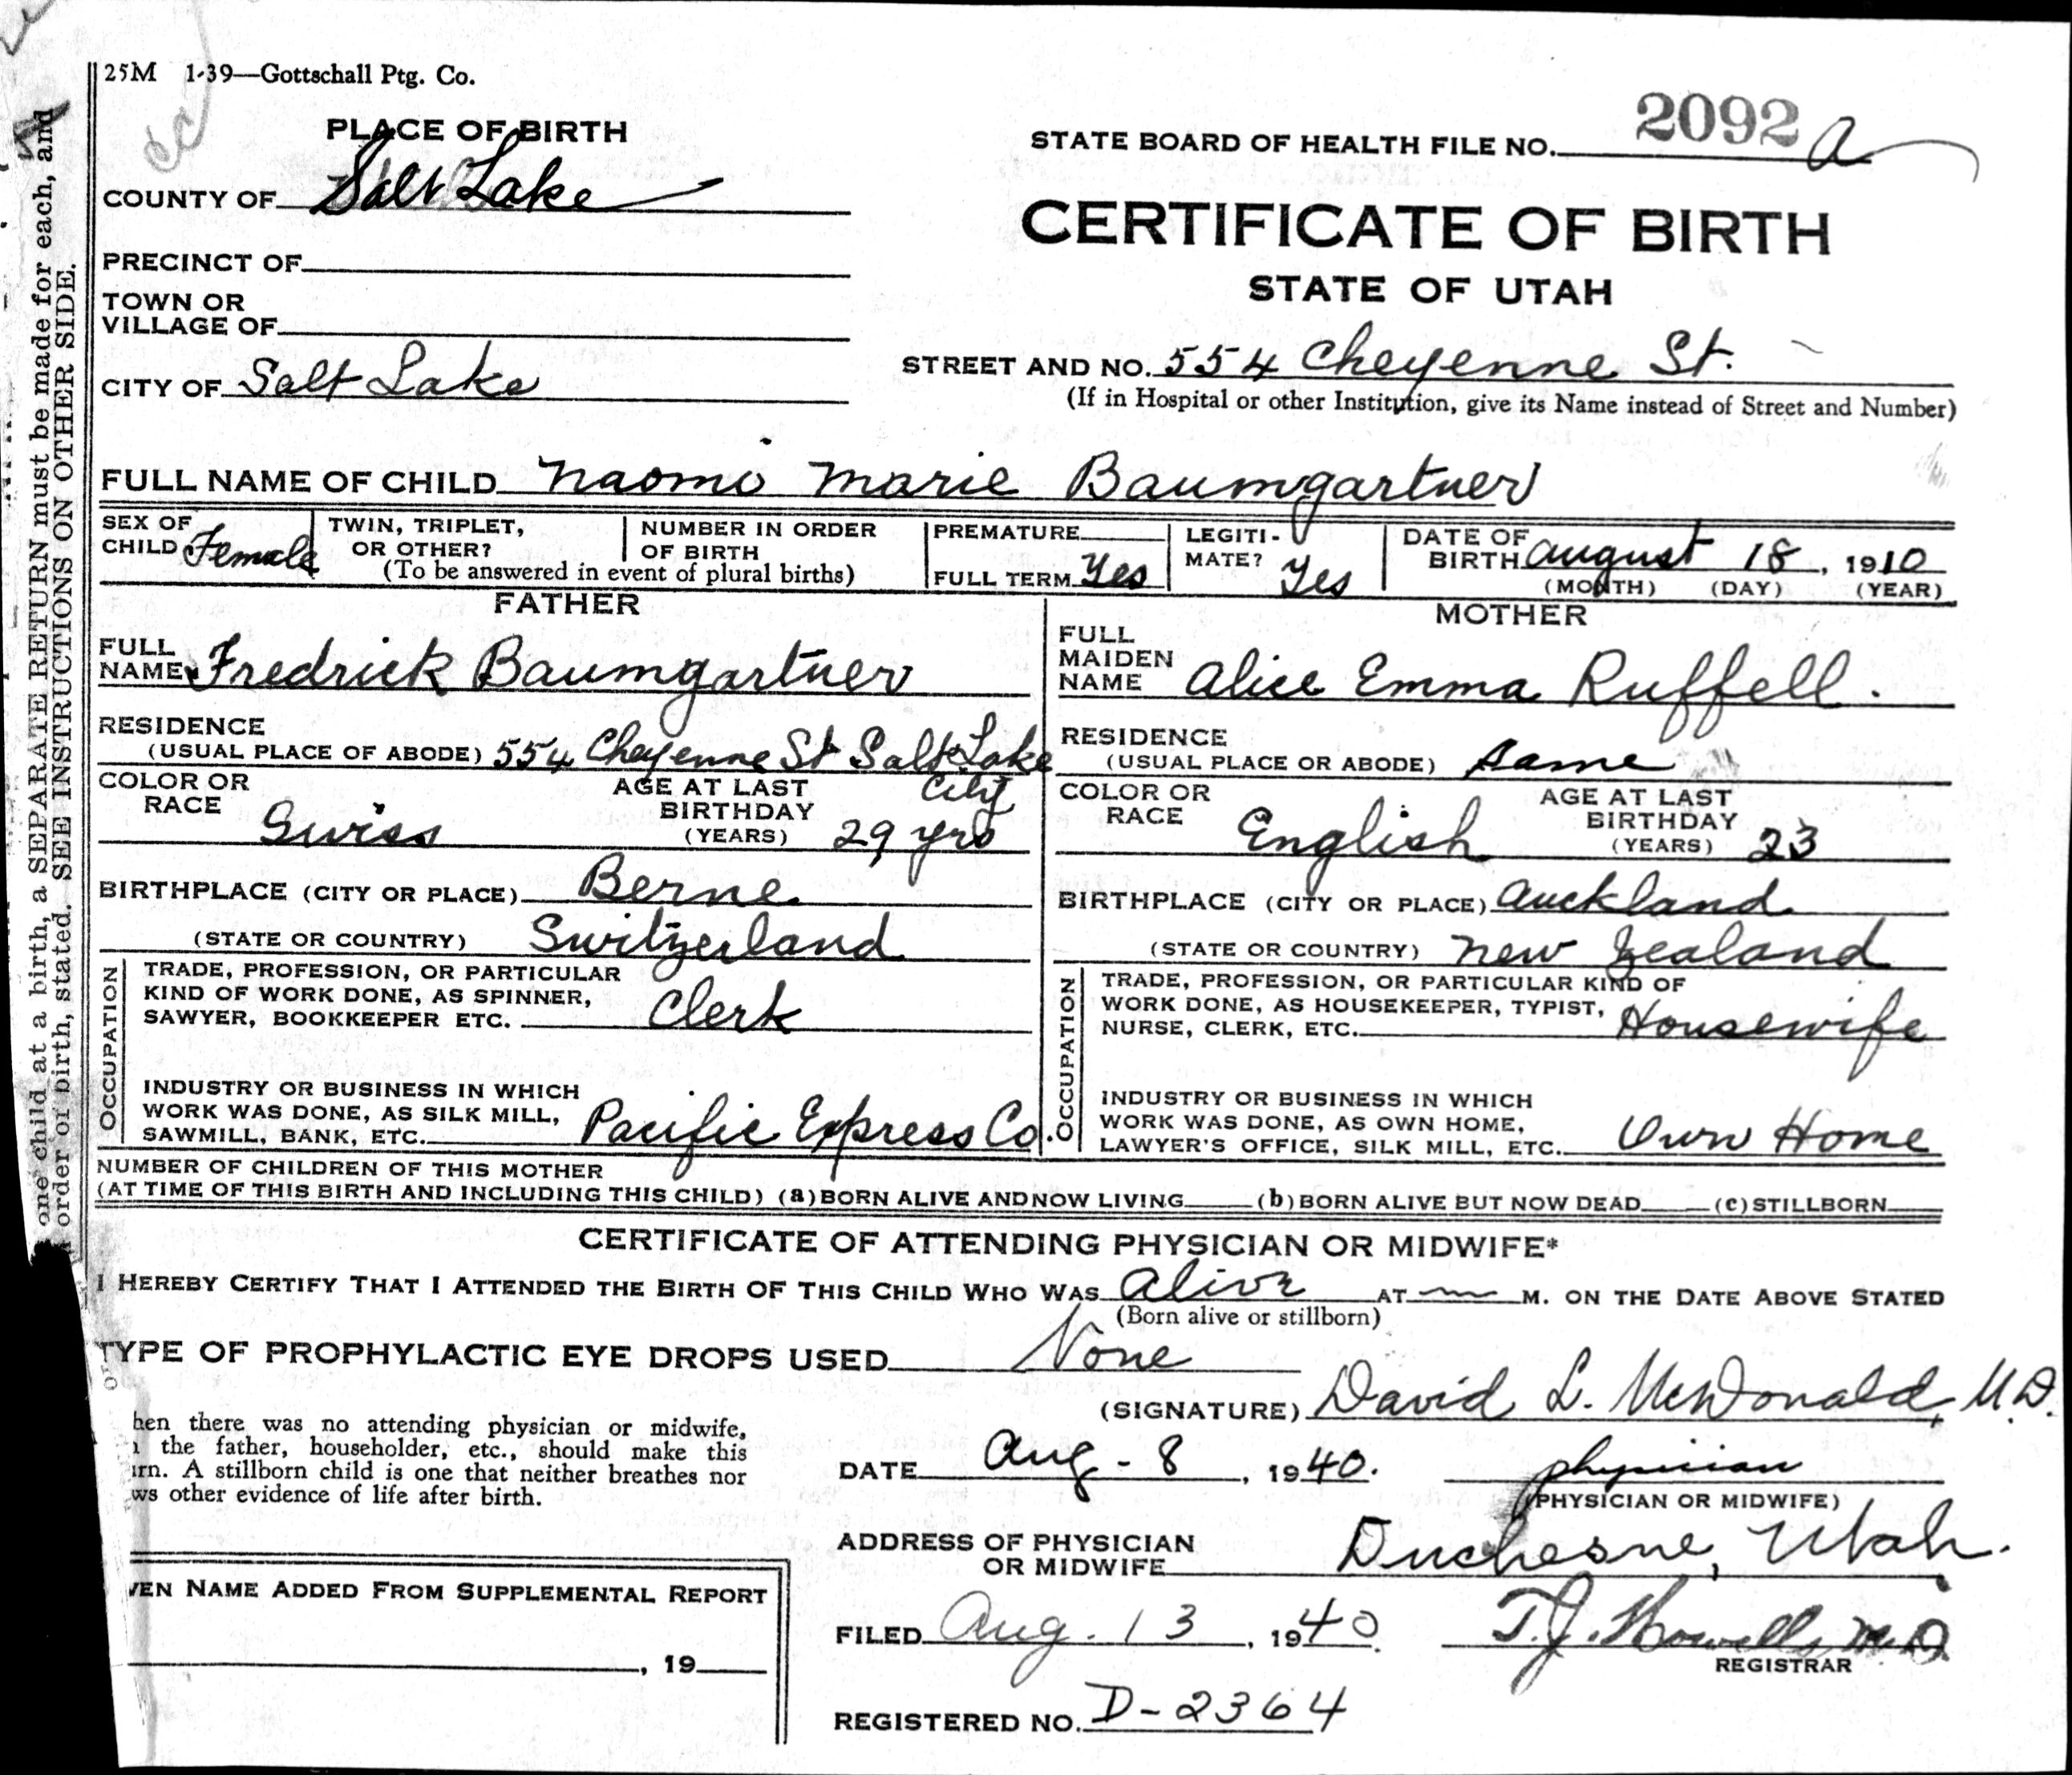 25M 1-39—Gottschall Ptg. Co.
PLACE OF BIRTH
STATE BOARD OF HEALTH FILE NO. 2092 a
COUNTY OF Salt Lake
CERTIFICATE OF BIRTH
PRECINCT OF
STATE OF UTAH
TOWN OR
VILLAGE OF
STREET AND NO. 554 Cheyenne St.
CITY OF Salt Lake
(If in Hospital or other Institution, give its Name instead of Street and Number)
FULL NAME OF CHILD Naomi Marie Baumgartner
SEX OF CHILD Female
TWIN, TRIPLET, OR OTHER?
NUMBER IN ORDER OF BIRTH
(To be answered in event of plural births)
PREMATURE
FULL TERM Yes
LEGITI-MATE? Yes
DATE OF BIRTH August 18, 1910
(MONTH) (DAY) (YEAR)
FATHER
FULL NAME Fredrick Baumgartner
RESIDENCE
(USUAL PLACE OF ABODE) 554 Cheyenne St Salt Lake City
COLOR OR RACE Swiss
AGE AT LAST BIRTHDAY (YEARS) 29 yrs
BIRTHPLACE (CITY OR PLACE) Berne
(STATE OR COUNTRY) Switzerland
OCCUPATION
TRADE, PROFESSION, OR PARTICULAR
KIND OF WORK DONE, AS SPINNER,
SAWYER, BOOKKEEPER ETC. Clerk
INDUSTRY OR BUSINESS IN WHICH
WORK WAS DONE, AS SILK MILL,
SAWMILL, BANK, ETC. Pacific Express Co.
MOTHER
FULL MAIDEN NAME Alice Emma Ruffell.
RESIDENCE
(USUAL PLACE OR ABODE) Same
COLOR OR RACE English
AGE AT LAST BIRTHDAY (YEARS) 23
BIRTHPLACE (CITY OR PLACE) Auckland
(STATE OR COUNTRY) New Zealand
OCCUPATION
TRADE, PROFESSION, OR PARTICULAR KIND OF
WORK DONE, AS HOUSEKEEPER, TYPIST,
NURSE, CLERK, ETC. Housewife
INDUSTRY OR BUSINESS IN WHICH
WORK WAS DONE, AS OWN HOME,
LAWYER'S OFFICE, SILK MILL, ETC. Own Home
NUMBER OF CHILDREN OF THIS MOTHER
(AT TIME OF THIS BIRTH AND INCLUDING THIS CHILD) (a) BORN ALIVE AND NOW LIVING (b) BORN ALIVE BUT NOW DEAD (c) STILLBORN
CERTIFICATE OF ATTENDING PHYSICIAN OR MIDWIFE*
I HEREBY CERTIFY THAT I ATTENDED THE BIRTH OF THIS CHILD WHO WAS Alive AT M. ON THE DATE ABOVE STATED
(Born alive or stillborn)
TYPE OF PROPHYLACTIC EYE DROPS USED None
(SIGNATURE) David L. McDonald, M.D.
hen there was no attending physician or midwife,
the father, householder, etc., should make this
urn. A stillborn child is one that neither breathes nor
ws other evidence of life after birth.
DATE Aug - 8, 1940.
physician
(PHYSICIAN OR MIDWIFE)
ADDRESS OF PHYSICIAN
OR MIDWIFE Duchesne, Utah.
VEN NAME ADDED FROM SUPPLEMENTAL REPORT
, 19
FILED Aug. 13, 1940
T.J. Howells M.D.
REGISTRAR
REGISTERED NO. D-2364
one child at a birth, a SEPARATE RETURN must be made for each, and
order of birth, stated. SEE INSTRUCTIONS ON OTHER SIDE.